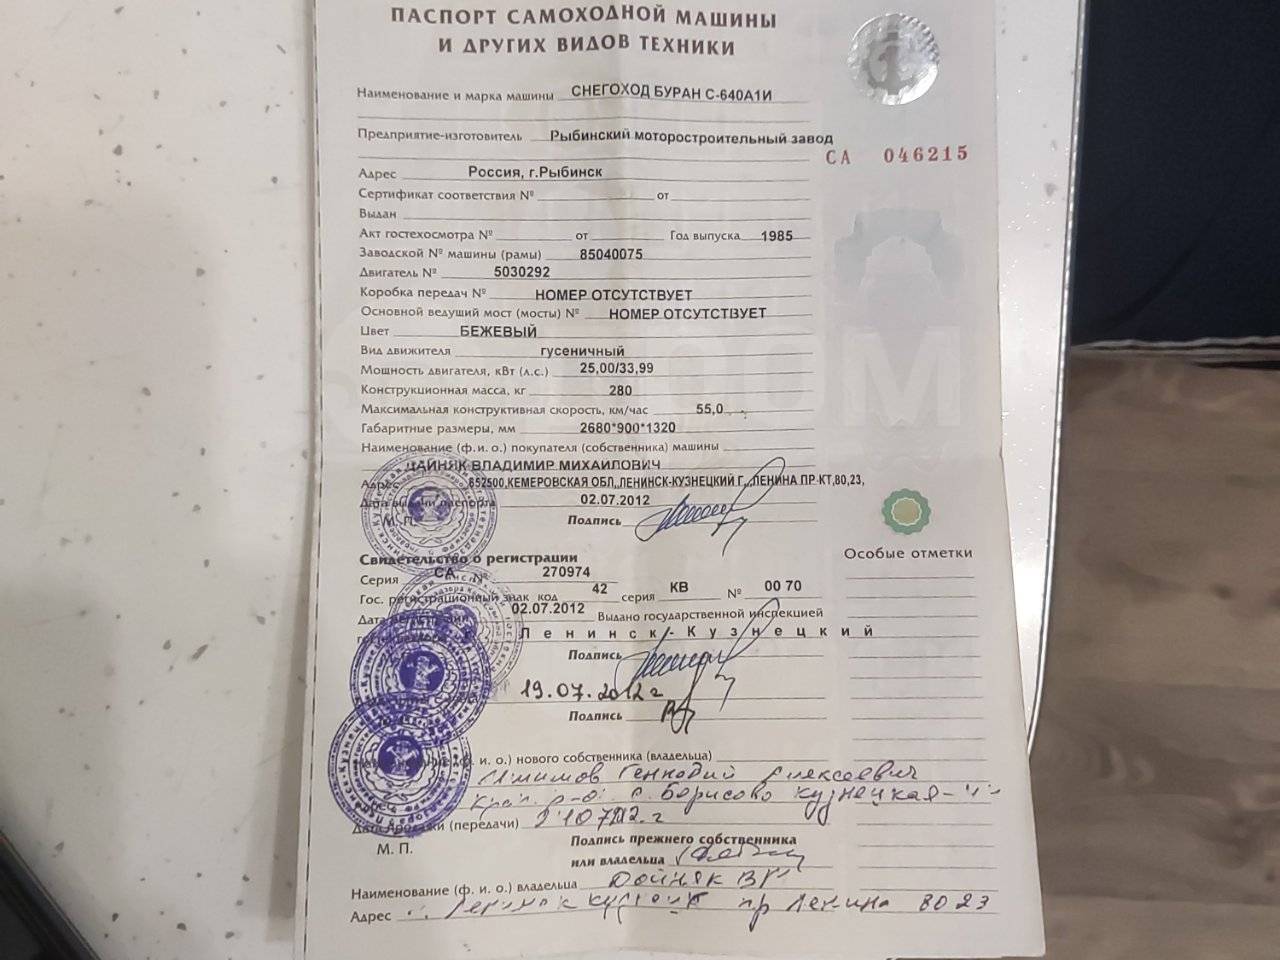 ПАСПОРТ САМОХОДНОЙ МАШИНЫ
И ДРУГИХ ВИДОВ ТЕХНИКИ
Наименование и марка машины СНЕГОХОД БУРАН С-640А1И
Предприятие-изготовитель Рыбинский моторостроительный завод
СА 046215
Адрес Россия, г.Рыбинск
Сертификат соответствия № от
Выдан
Акт гостехосмотра № от Год выпуска 1985
Заводской № машины (рамы) 85040075
Двигатель № 5030292
Коробка передач № НОМЕР ОТСУТСТВУЕТ
Основной ведущий мост (мосты) № НОМЕР ОТСУТСТВУЕТ
Цвет БЕЖЕВЫЙ
Вид движителя гусеничный
Мощность двигателя, кВт (л.с.) 25,00/33,99
Конструкционная масса, кг 280
Максимальная конструктивная скорость, км/час 55,0
Габаритные размеры, мм 2680*900*1320
Наименование (ф. и. о.) покупателя (собственника) машины
ВЛАДИМИР МИХАИЛОВИЧ
Адрес 652500,КЕМЕРОВСКАЯ ОБЛ,,ЛЕНИНСК-КУЗНЕЦКИЙ Г,,ЛЕНИНА ПР-КТ,80,23,
Дата выдачи паспорта 02.07.2012
М. П. Подпись
Особые отметки
Свидетельство о регистрации
Серия СА № 270974
Гос. регистрационный знак код 42 серия КВ № 00 70
Дата регистрации 02.07.2012 Выдано государственной инспекцией
г. Ленинск-Кузнецкий
Подпись
19.07.2012 г
Подпись
(ф. и. о.) нового собственника (владельца)
Геннадий Алексеевич
Борисово Кузнецкая
Дата продажи (передачи)
М. П. Подпись прежнего собственника
или владельца
Наименование (ф. и. о.) владельца
Адрес пр Ленина 80 23